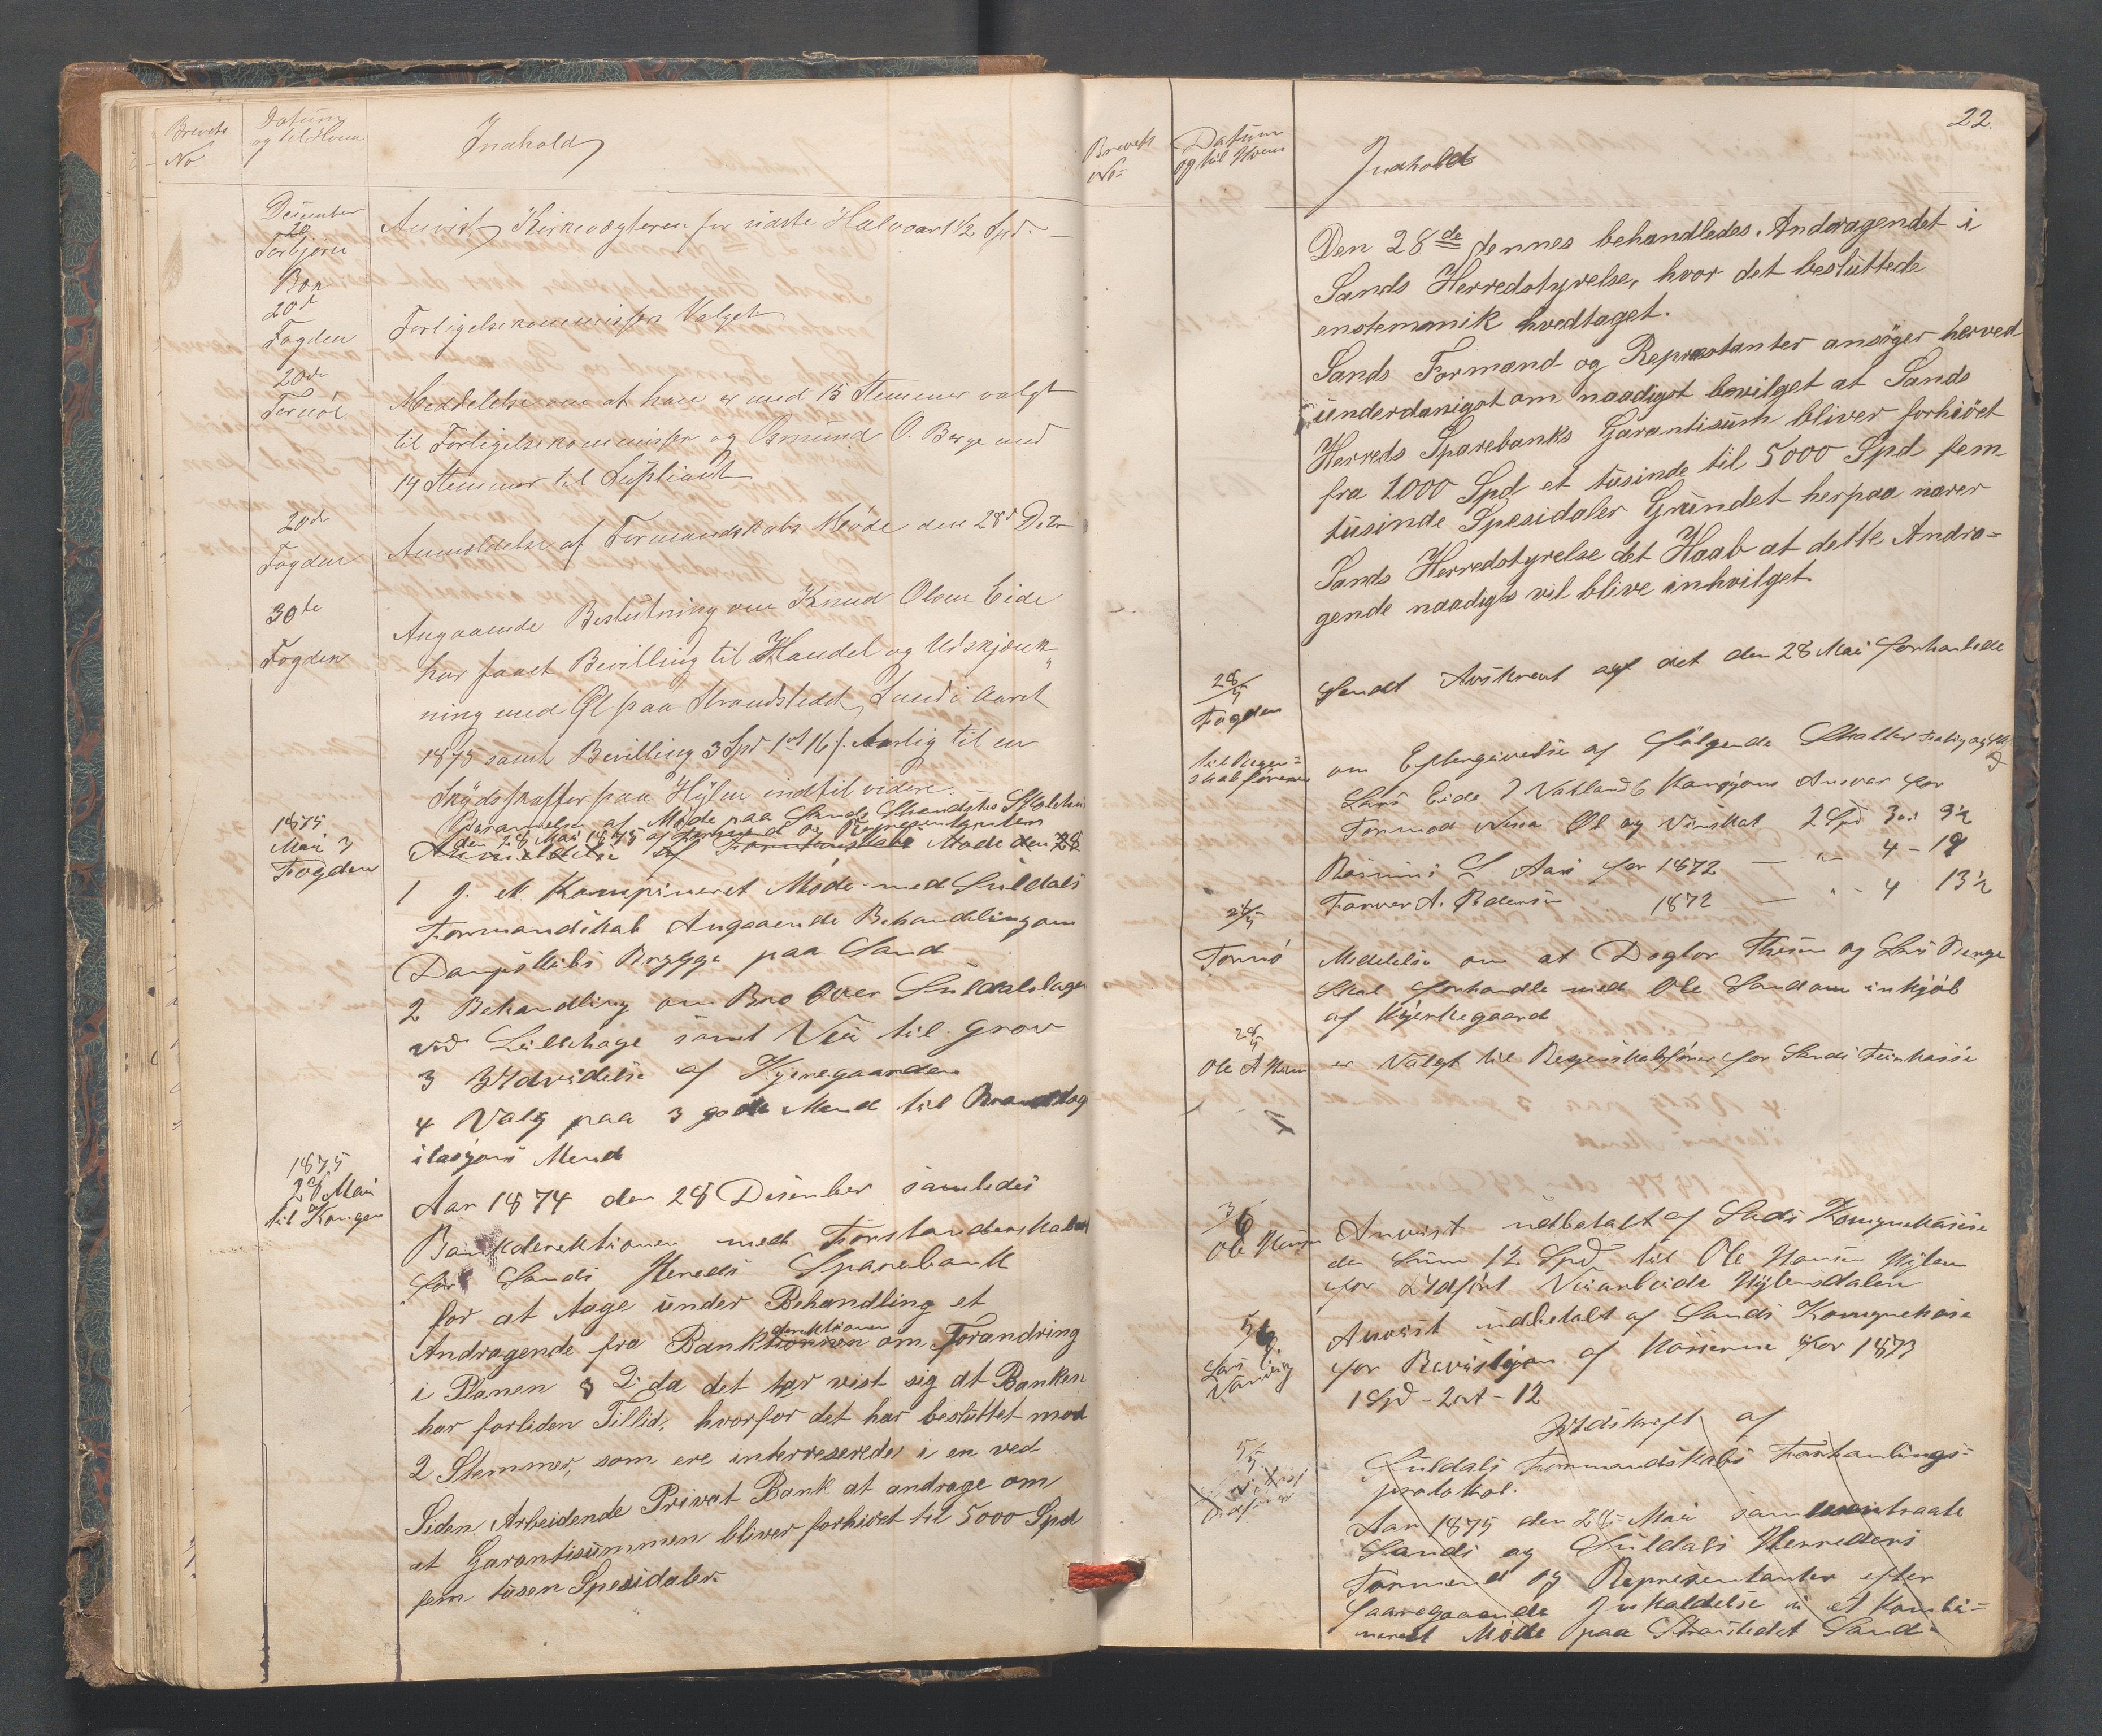 Brevets
No.
Datum
og til Hvem
Indhold
December
20
Torbjørn
Bø
Anvist Kirkevægteren for sidste Halvaar 1 1/2 Spd. —
20d
Fogden
Forligelseskommissær Valget
20de
Meddelelse om at han er med 15 Stemmer valgt
til Forligelseskommissær og Osmund O. Berge med
14 Stemmer til Supliant
20d
Fogden
Anmeldelse af Formandskabs Møde den 28d Dezr
30te
Fogden
Angaaende Beslutning om Knud Olsen Eide
har faaet Bevilling til Handel og Udskjænk-
ning med Øl paa Strandstedet Sand i Aaret
1875 samt Bevilling 3 Spd 1 ort 16 s. Aarlig til en
Skydsskaffer paa Hylen indtil videre.
1875
Mai 3
Fogden
Berammelse af Møde paa Sands Strandsted
den 28 Mai 1875 af Formend og Representanter
Anmeldelse af Formandskabs Møde den 28
1 g. et Kompineret Møde med Suldals
Formandskab Angaaende Behandling om
Dampskibs Brygge paa Sand
2 Behandling om Bro Over Suldalslagen
ved Lillehage samt Vei til Grov
3 Udvidelse af Kjerregaarden
4 Valg paa 3 gode Mend til Brandtag
Mend
1875
28 Mai
til Kongen
Aar 1874 den 28 Desember samledes
Bankderektionen med Forstanderskabet
for Sands Hereds Sparebank
for at tage under Behandling et
Andragende fra Bankderektionen om Forandring
i Planen § 2. da det har vist sig at Banken
har forliden Tillid, hvorfor det har besluttet mod
2 Stemmer, som ere interreserede i en ved
Siden Arbeidende Privat Bank at andrage om
at Garantisummen bliver forhiøet til 5000 Spd
fem tusen Spesidaler.
22.
Brevets
No=
Datum
og til Hvem
Indhold
Den 28de dennes behandledes Andragendet i
Sands Herredstyrelse, hvor det besluttede
enstemmik hvedtaget.
Sands Formænd og Repræstanter ansøger herved
underdanigst om naadigst bevilget at Sands
Herreds Sparebanks Garantisum bliver forhiöet
fra 1000 Spd et tusinde til 5000 Spd fem
tusinde Spesidaler Grundet herpaa nærer
Sands Herredstyrelse det Haab at dette Andra=
gende naadigs vil blive inhvilget
28/5
Fogden
Sendt Avskrevt af det den 28 Mai forhanlede
til Regen=
skabsføreren
om Eftergivelse af følgende Skatter
Lars Eide Vatland Ansvar for
Tormod Øl og Vinskat 2 Spd 3 ort 9 1/2
Rasmus S Aas for 1872 — " — 4 - 19
Farver A. Pedersen 1872 — " - 4 13 1/2
28/5
Tornö
Medelelse om at Dogtor Thesen og Lars Berge
Skal forhandle med Ole Sand om inkjøb
af Kjerkegaard
28/5
Ole A
er Valgt til Regenskabsfører for Sands Feinkasse
3/6
Ole Hansen
Anvist udbetalt af Sads Komgnekasse
den Sum 12 Spd til Ole Hansen Hylen
for Udført Veiarbeide Hylensdalen
5/6
Lars
Anvist udbetalt af Sands Komgnekase
for Revisision af Kasserne for 1873
1 Spd - 2 ort - 12
5/5
Udskreft af
Suldals Formandskabs Forhanlings-
protokol.
Aar 1875 den 28 Mai sammentraate
Sands og Suldals Herreders
Formend og Representanter efter
faaregaaende Inkaldelse i et kombi=
neret Möde paa Strandstedet Sand